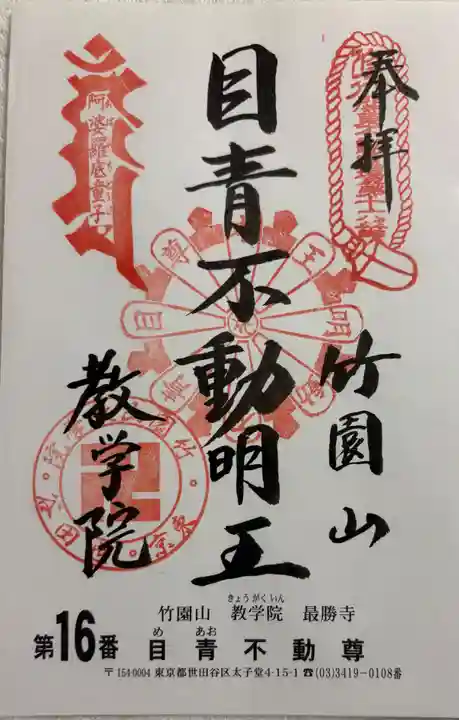 奉拝
竹園山
目青不動明王
教学院
阿婆羅底童子
竹園山　教学院　最勝寺
きょうがくいん
第16番　目青不動尊
め　あお
〒154-0004 東京都世田谷区太子堂4-15-1 ☎(03)3419-0108番